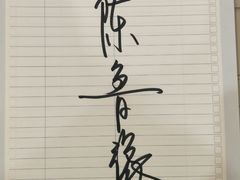 陈鲁豫